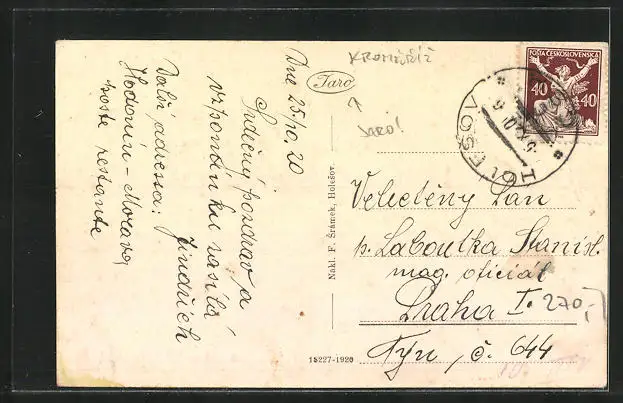 Dne 25/10. 20
Srdečný pozdrav a
vzpomínku zasílá
Jindřich
Další adressa:
Hodonín - Morava,
poste restante
KROMĚŘÍŽ
Jaro
Jaro!
Nakl. F. Šrámek, Holešov.
18227-1920
POŠTA ČESKOSLOVENSKÁ
40 40
HOLEŠOV
Velectěný Pan
p. Laboutka Stanisl.
mag. oficiál
Praha I.
270,-
Týn, č. 644